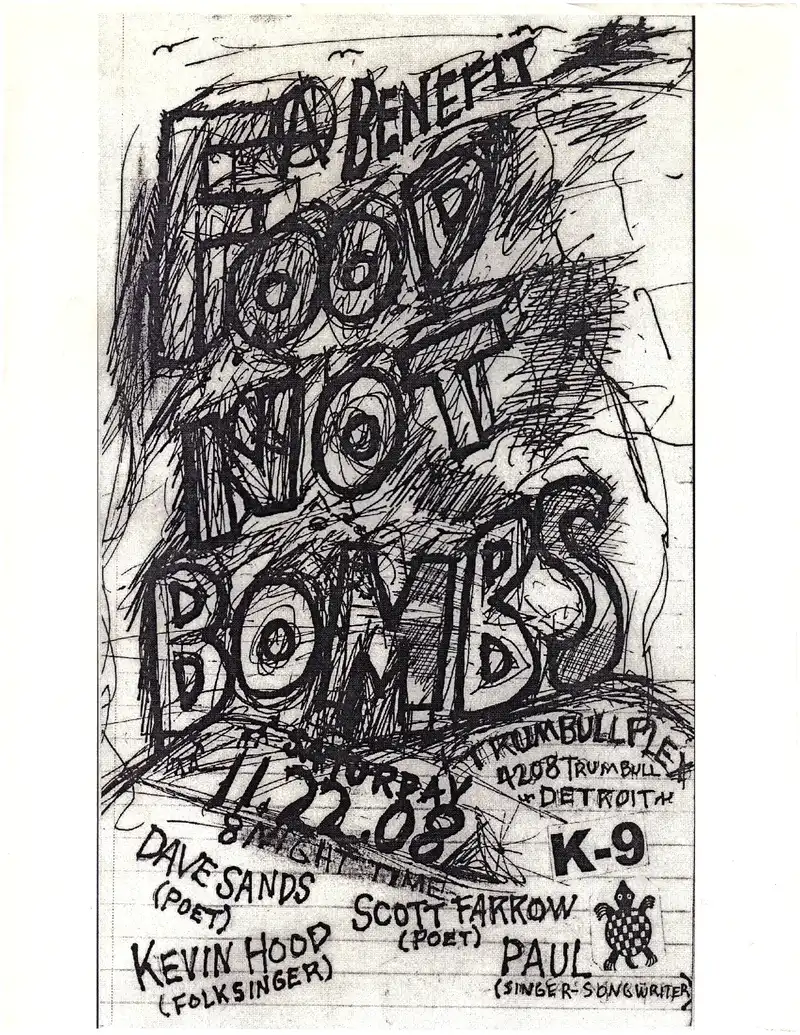 A BENEFIT
FOOD
NOT
BOMBS
SATURDAY
11.22.08
8 NIGHT TIME
TRUMBULLPLEX
4208 TRUMBULL
DETROIT
K-9
DAVE SANDS
(POET)
SCOTT FARROW
(POET)
KEVIN HOOD
(FOLKSINGER)
PAUL
(SINGER-SONGWRITER)